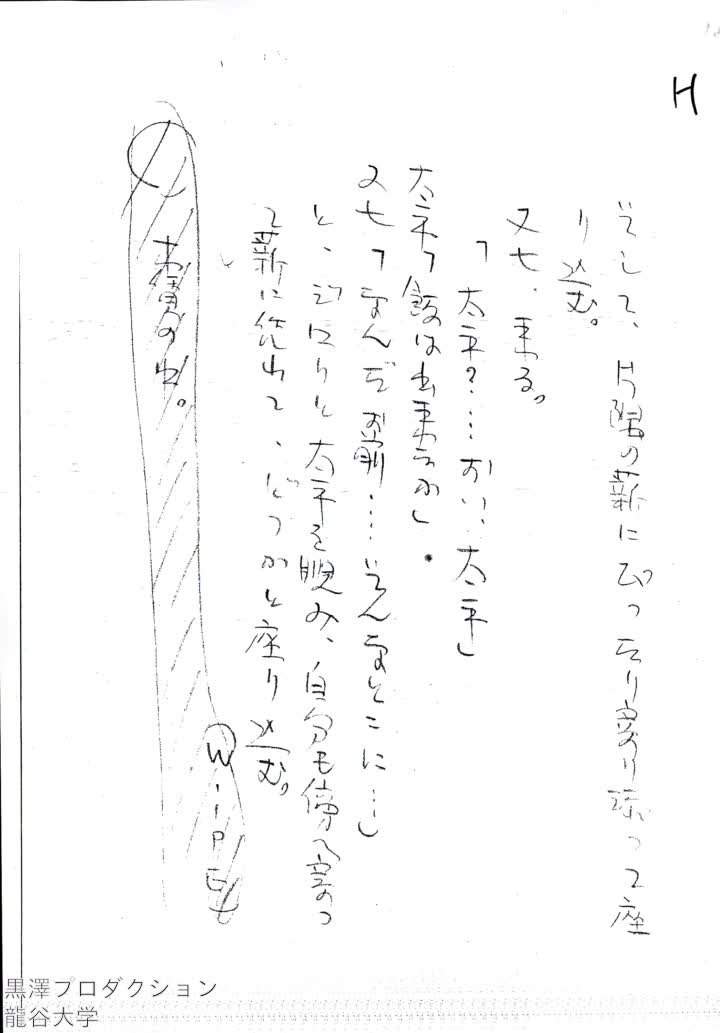 H
そして、片隅の薪にぴったり寄り添って座
り込む。
又七、来る。
「太平?……おい、太平」
太平「飯は出来るか」
又七「なんだお前……そんなとこに…」
と、じろりと太平を睨み、自分も傍へ寄っ
て薪に凭れて、どっかと座り込む。
WIPE
の出。
黒澤プロダクション
龍谷大学